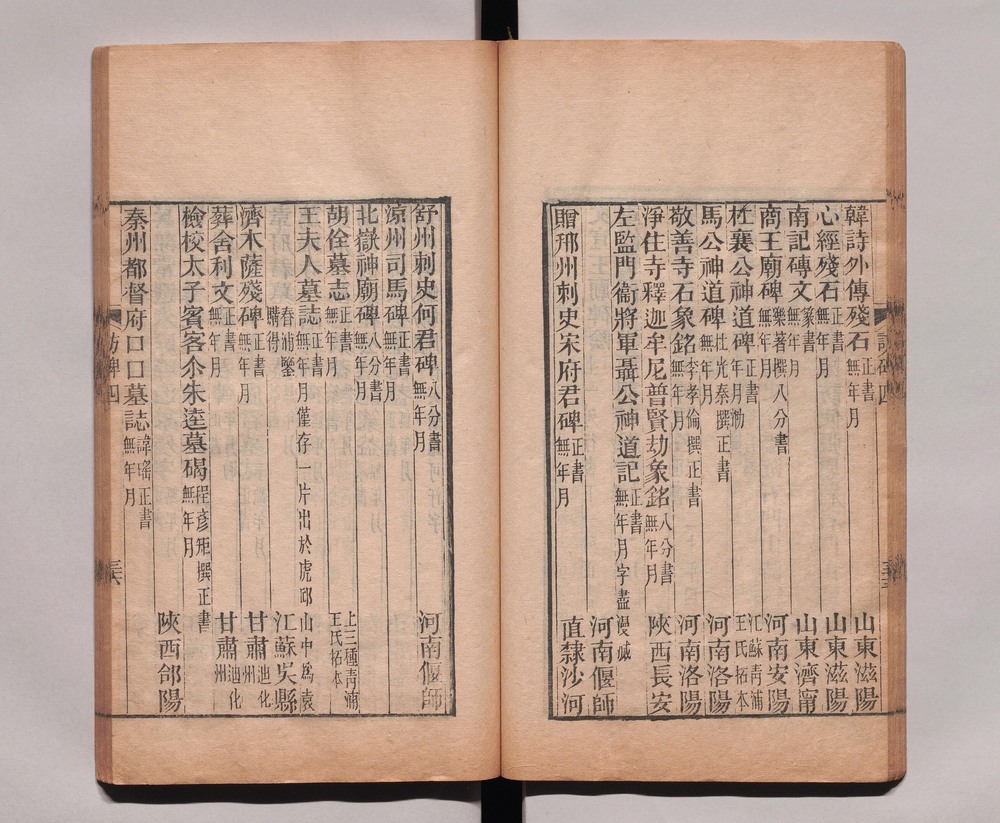 韓詩外傳殘石 正書 無年月 山東滋陽
心經殘石 正書 無年月 山東滋陽
南記磚文 篆書 無年月 山東濟甯
商王廟碑 樂著撰八分書 無年月 河南安陽
杜襄公神道碑 正書 年月泐 江蘇青浦王氏拓本
馬公神道碑 杜光泰撰正書 無年月 河南洛陽
敬善寺石象銘 李孝倫撰正書 無年月 河南洛陽
淨住寺釋迦牟尼普賢劫象銘 八分書 無年月 陝西長安
左監門衞將軍聶公神道記 正書 無年月字盡漫滅 河南偃師
贈邢州刺史宋府君碑 正書 無年月 直隸沙河
舒州刺史何君碑 八分書 無年月 河南偃師
涼州司馬碑 正書 無年月
北嶽神廟碑 八分書 無年月
胡佺墓志 正書 無年月 上三種青浦王氏拓本
王夫人墓誌 正書 無年月僅存一片出於虎邱山中爲袁
春浦鑒購得 江蘇吳縣
濟木薩殘碑 正書 無年月 甘肅迪化州
葬舍利文 正書 無年月 甘肅迪化州
檢校太子賓客尒朱逵墓碣 程彥矩撰正書 無年月 陝西郃陽
秦州都督府口口墓誌 諱瑤正書 無年月
訪碑四